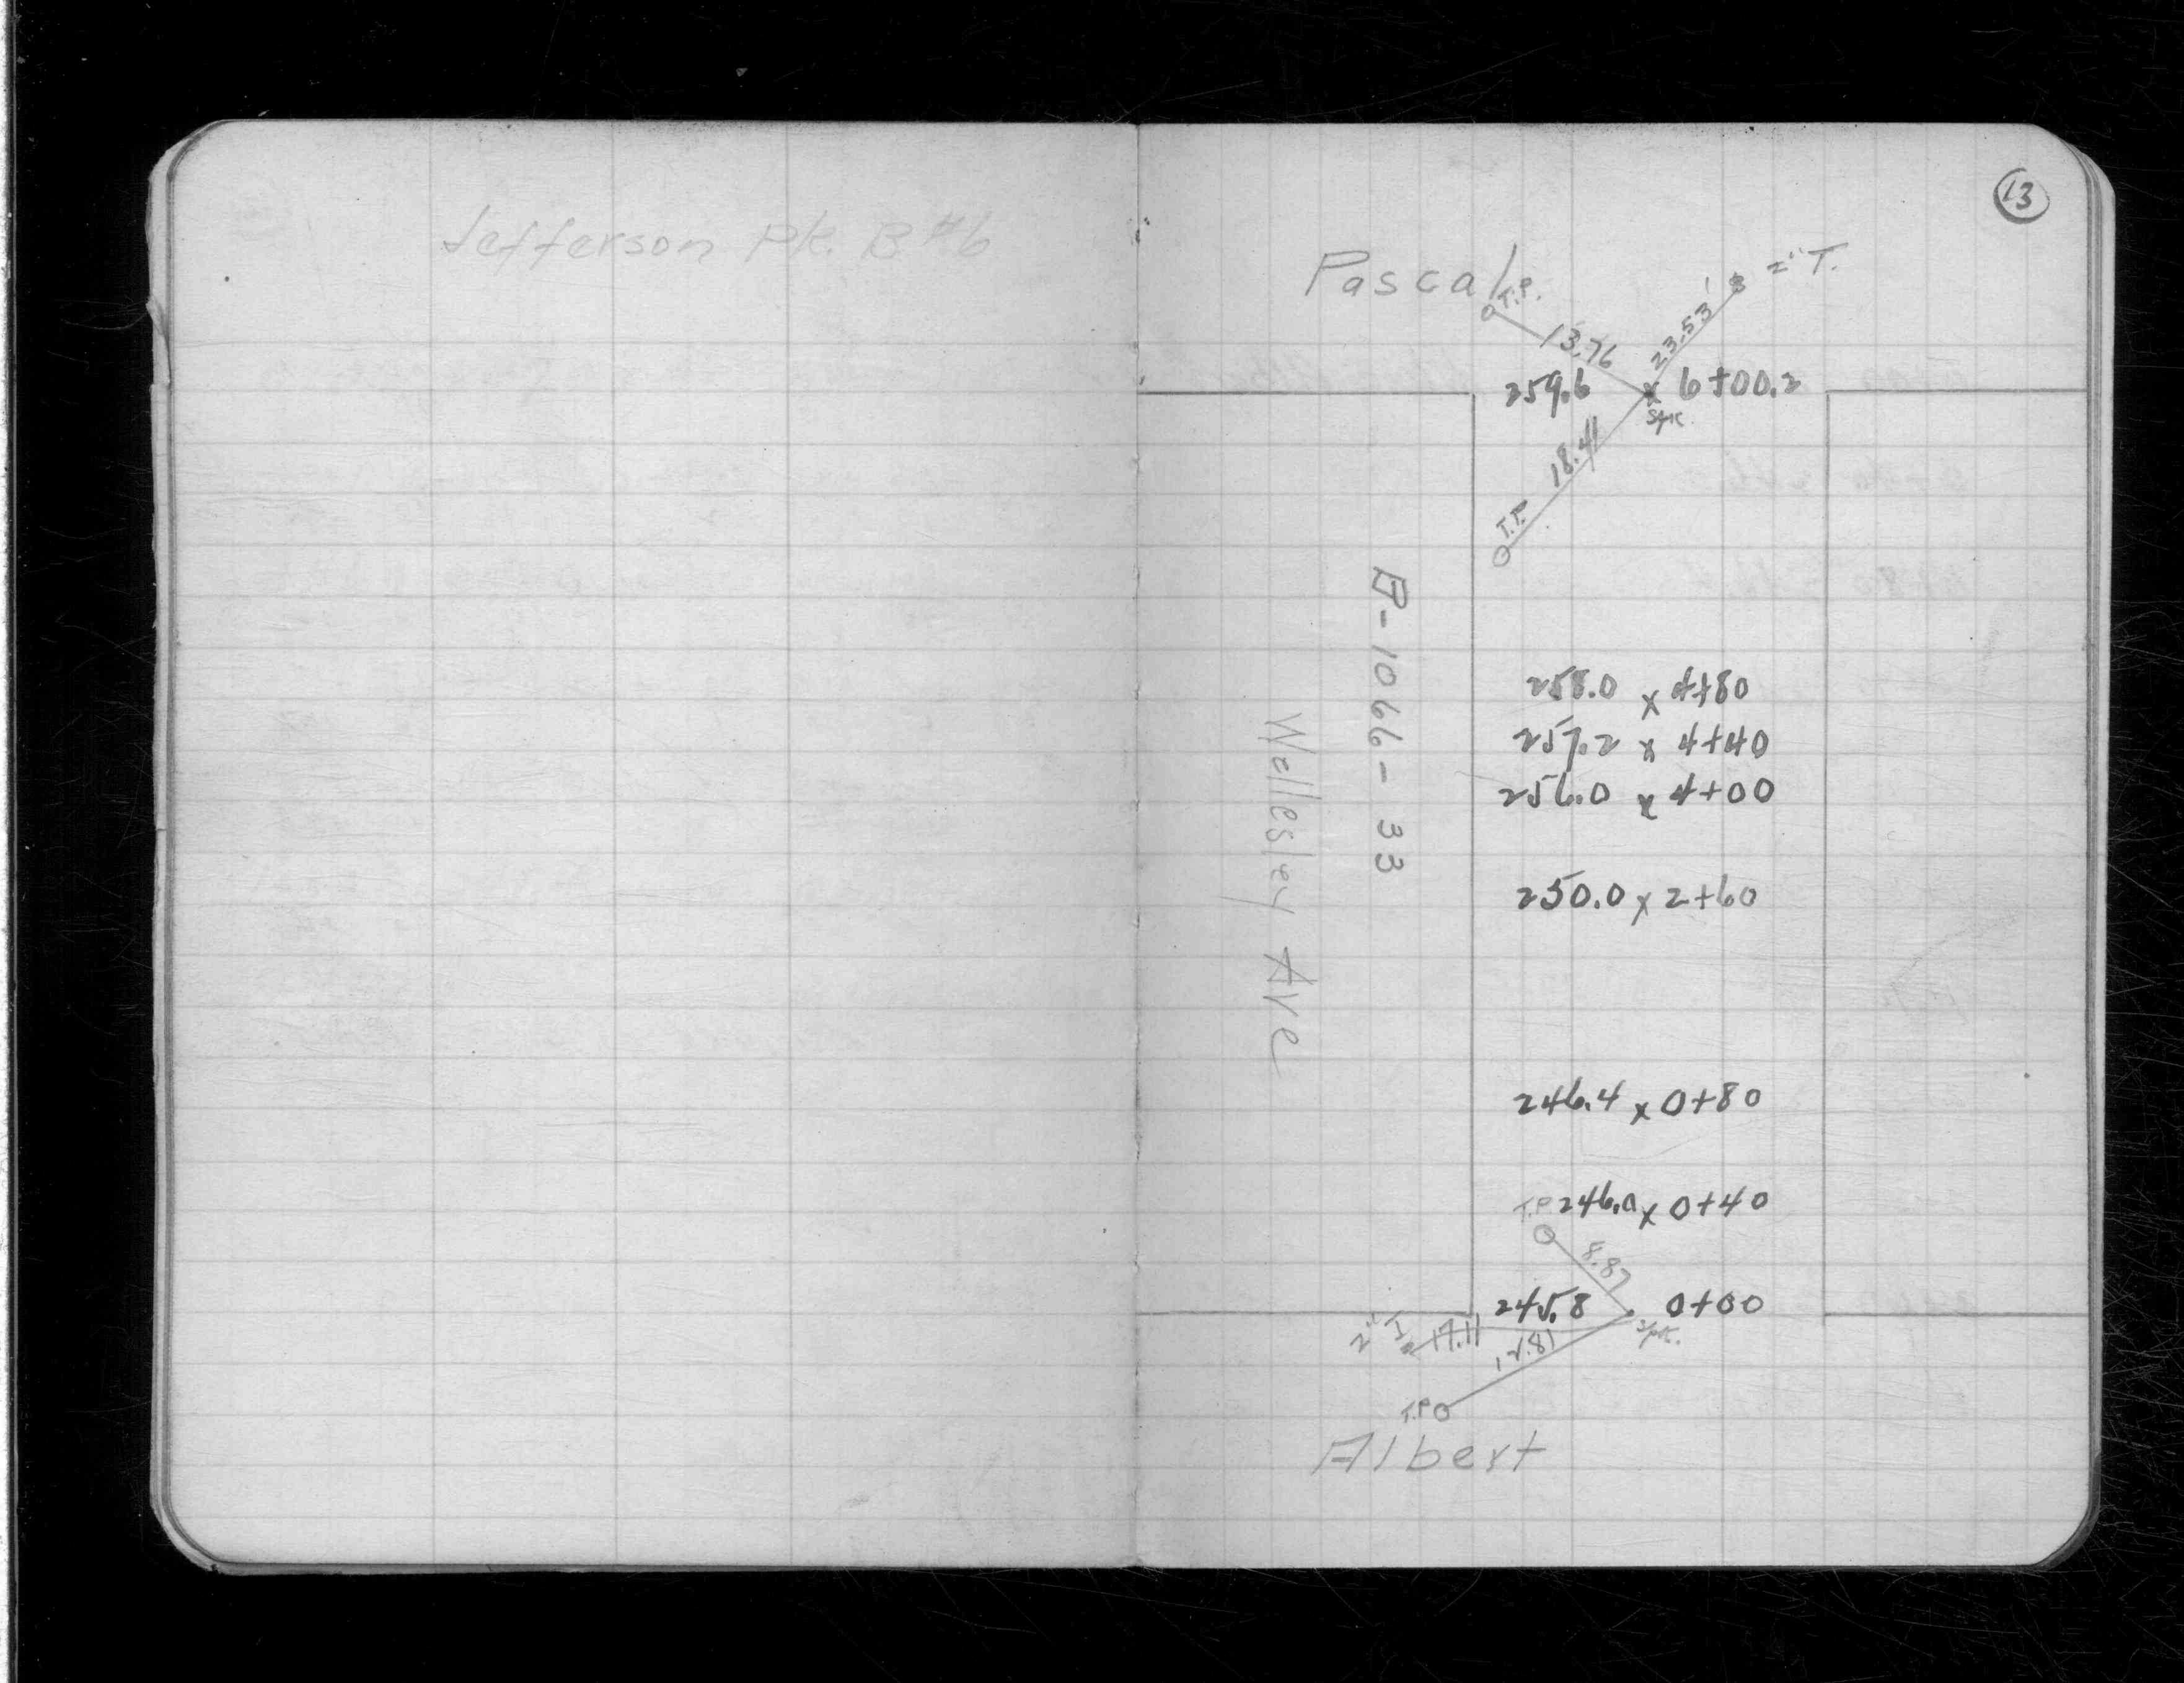 Jefferson Pk. B #6
13
Pascal
T.P.
2" T.
13.76
23.53'
259.6 x 6+00.2
Spk.
18.41
T.P.
B-1066-33
Wellesley Ave
258.0 x 4+80
257.2 x 4+40
256.0 x 4+00
250.0 x 2+60
246.4 x 0+80
T.P. 246.0 x 0+40
8.87
245.8 0+00
Spk.
2" T.
17.11
T.P.
Albert